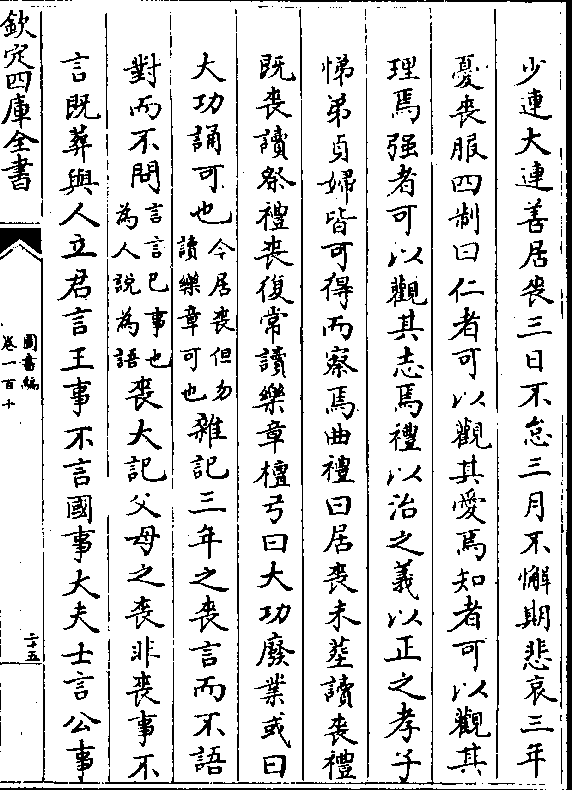 少連大連善居喪三日不怠三月不懈期悲哀三年
憂喪服四制曰仁者可以觀其愛焉知者可以觀其
理焉强者可以觀其志焉禮以治之義以正之孝子
悌弟貞婦皆可得而察焉曲禮曰居喪未塟讀喪禮
既喪讀祭禮喪復常讀樂章檀弓曰大功廢業或曰
大功誦可也今居喪但勿讀樂章可也雜記三年之喪言而不語
對而不問言言已事也為人說為語喪大記父母之喪非喪事不
言既葬與人立君言王事不言國事大夫士言公事
欽定四庫全書
圖書編
卷一百十
二十五